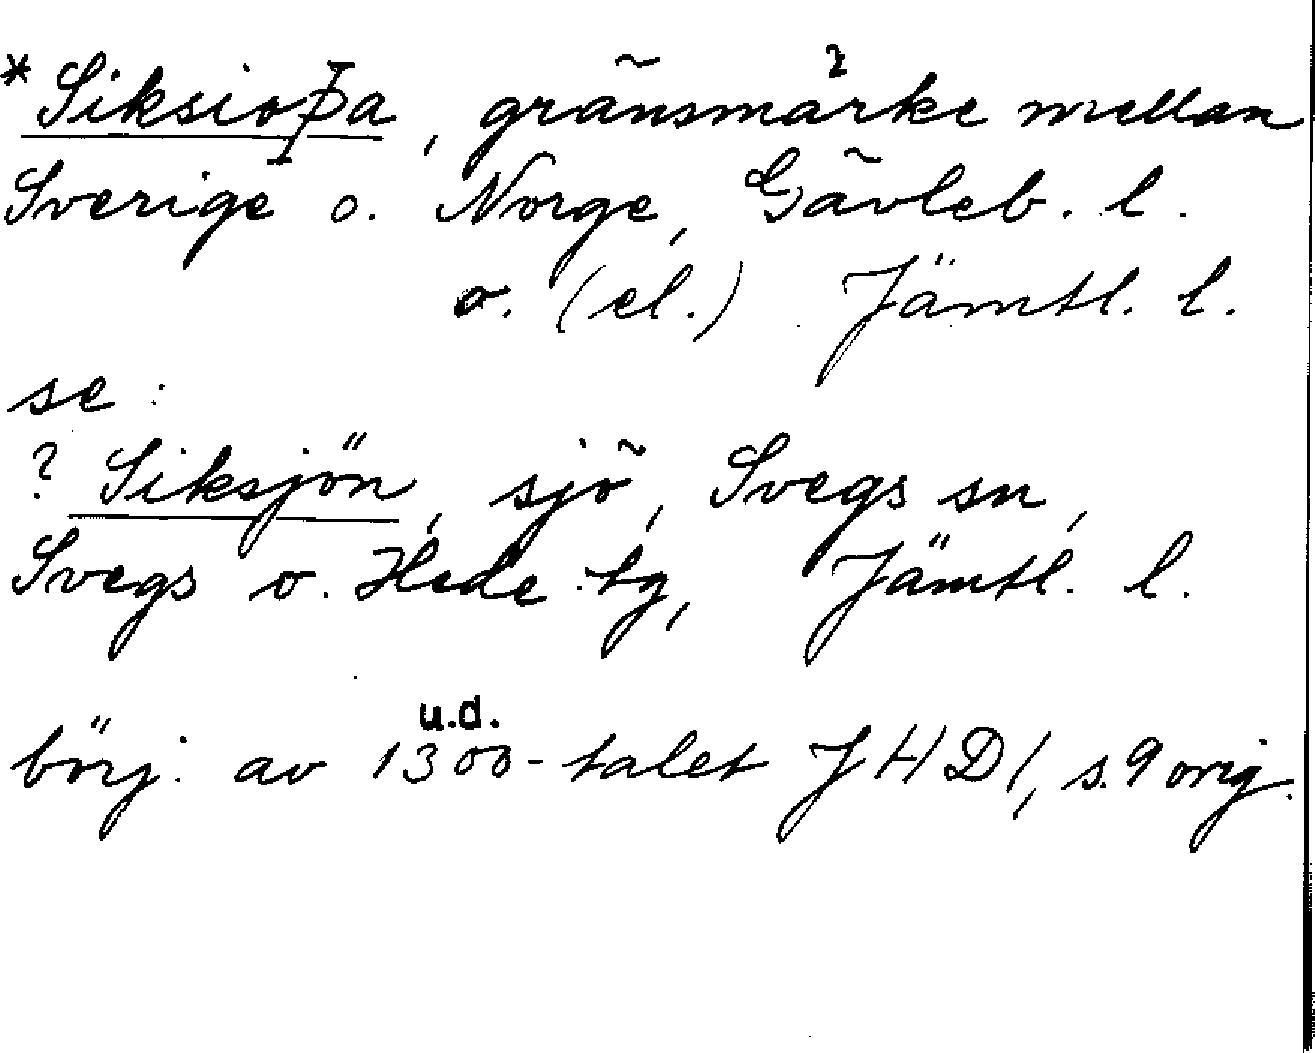 *Siksioþa, gränsmärke mellan
Sverige o. Norge, Gävleb. l.
o. (el.) Jämtl. l.
se:
? Siksjön, sjö, Svegs sn,
Svegs o. Hede tg, Jämtl. l.
u.d.
börj. av 1300-talet JHD 1, s. 9 orig.